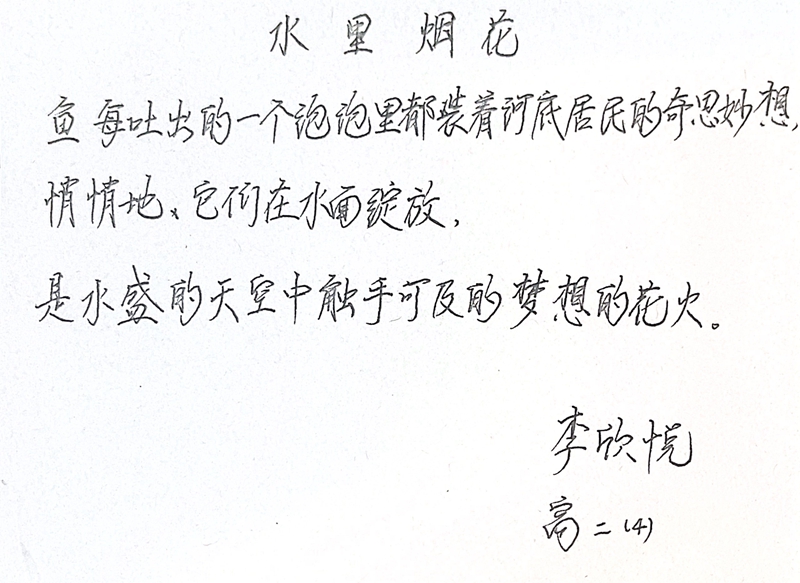 水里烟花
鱼每吐出的一个泡泡里都装着河底居民的奇思妙想,
悄悄地、它们在水面绽放,
是水盛的天空中触手可及的梦想的花火。
李欣悦
高二(4)